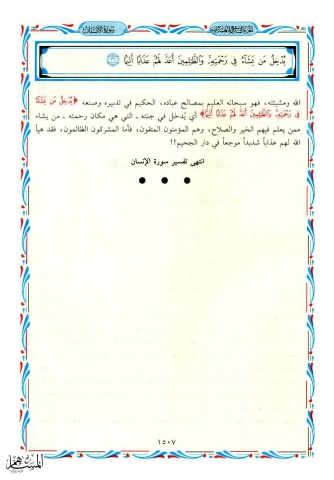 سورة الإنسان
الجزء التاسع والعشرون
يُدْخِلُ مَن يَشَآءُ فِي رَحْمَتِهِۦ وَٱلظَّٰلِمِينَ أَعَدَّ لَهُمْ عَذَابًا أَلِيمًۢا ﴿٣١﴾
الله ومشيئته، فهو سبحانه العليم بمصالح عباده، الحكيم في تدبيره وصنعه ﴿يُدْخِلُ مَن يَشَآءُ
فِي رَحْمَتِهِۦ وَٱلظَّٰلِمِينَ أَعَدَّ لَهُمْ عَذَابًا أَلِيمًا﴾ أي يُدخل في جنته ـ التي هي مكان رحمته ـ من يشاء
ممن يعلم فيهم الخير والصلاح، وهم المؤمنون المتقون، فأما المشركون الظالمون، فقد هيأ
الله لهم عذاباً شديداً موجعاً في دار الجحيم!!
انتهى تفسير سورة الإنسان
١٥٠٧